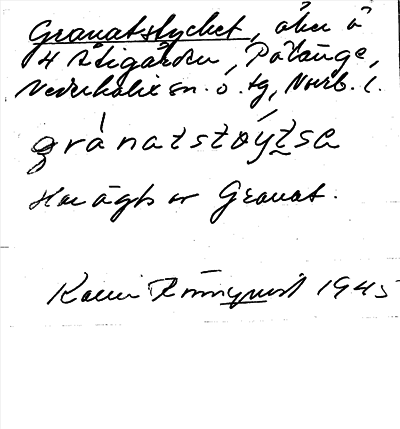 Granatstycket, åker å
4 Stigården, Pålänge,
Nederkalix sn. o. tg, Norrb. l.
grànatstøýtsa
Har ägts av Granat.
Karin Rönnqvist 1945